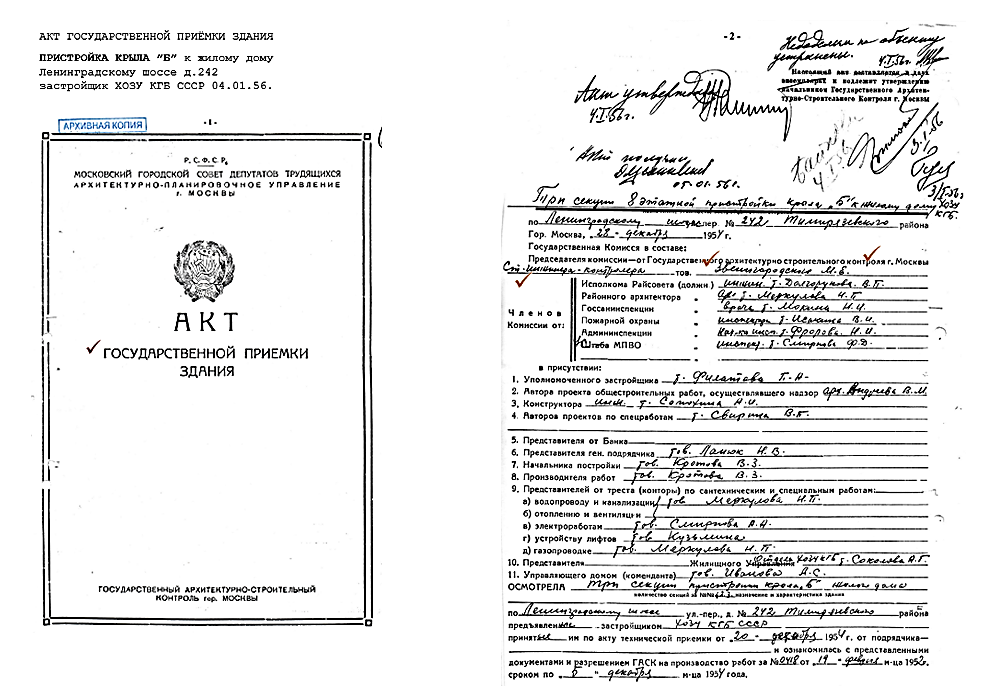 АКТ ГОСУДАРСТВЕННОЙ ПРИЁМКИ ЗДАНИЯ
ПРИСТРОЙКА КРЫЛА "Б" к жилому дому
Ленинградскому шоссе д.242
застройщик ХОЗУ КГБ СССР 04.01.56.
АРХИВНАЯ КОПИЯ
-1-
Р.С.Ф.С.Р.
МОСКОВСКИЙ ГОРОДСКОЙ СОВЕТ ДЕПУТАТОВ ТРУДЯЩИХСЯ
АРХИТЕКТУРНО-ПЛАНИРОВОЧНОЕ УПРАВЛЕНИЕ
г. МОСКВЫ
АКТ
ГОСУДАРСТВЕННОЙ ПРИЕМКИ
ЗДАНИЯ
ГОСУДАРСТВЕННЫЙ АРХИТЕКТУРНО-СТРОИТЕЛЬНЫЙ
КОНТРОЛЬ гор. МОСКВЫ
-2-
Недоделки по объекту
устранены. 4.I.56г.
Настоящий акт составляется в двух
экземплярах и подлежит утверждению
начальником Государственного Архитек-
турно-Строительного Контроля г. Москвы
Акт утверждаю
4.I.56г.
Акт получил
05.01.56г.
Три секции 8 этажной пристройки крыла "Б" к жилому дому ХОЗУ КГБ.
по Ленинградскому шоссе пер № 242 Тимирязевского района
Гор. Москва, "28" декабря 1954 г.
Государственная Комисся в составе:
Председателя комиссии—от Государственного архитектурно строительного контроля г. Москвы
Ст. инженера-контролера тов. Звенигородского М.Е.
Членов Комиссии от:
Исполкома Райсовета (должн.) инжен. т. Долгорукова. В.П.
Районного архитектора " арх. т. Меркулова Н.П.
Госсанинспекции " врача т. Мокина Н.И.
Пожарной охраны " инспектора т. Иськина В.И.
Админинспекции " т. Фролова. Н.И.
Штаба МПВО " инспек. т. Смирнова Ф.Д.
в присутствии:
1. Уполномоченного застройщика т. Филатова П.А.
2. Автора проекта общестроительных работ, осуществлявшего надзор арх. В.М.
3. Конструктора инж. т. А.И.
4. Авторов проектов по спецработам т. Свирина В.Г.
5. Представителя от Банка
6. Представителя ген. подрядчика тов. Ланюк Н.В.
7. Начальника постройки тов. Кротова В.З.
8. Производителя работ тов. Кротова В.З.
9. Представителей от треста (конторы) по сантехническим и специальным работам:
а) водопроводу и канализации тов Меркулова Н.П.
б) отоплению и вентиляци
в) электроработам тов. Смирнова А.Н.
г) устройству лифтов тов. Кузьмина
д) газопроводке тов. Меркулова Н.П.
10. Представителя Жилищного Управления Отдела ХОЗУ КГБ т. Соколова А.Г.
11. Управляющего домом (коменданта) тов. Иванова А.С.
ОСМОТРЕЛА три секции пристройки крыла "Б" жилого дома
количество секций за №№ 1,2,3 назначение и характеристика здания
по Ленинградскому шоссе ул.-пер., д. № 242 Тимирязевского района
предъявленные застройщиком ХОЗУ КГБ СССР
принятые им по акту технической приемки от "20" декабря 1954 г. от подрядчика—
и ознакомилась с представленными
документами и разрешением ГАСК на производство работ за № 0418 от "19" февраля м-ца 1952г.
сроком по "5" декабря м-ца 1954 года.